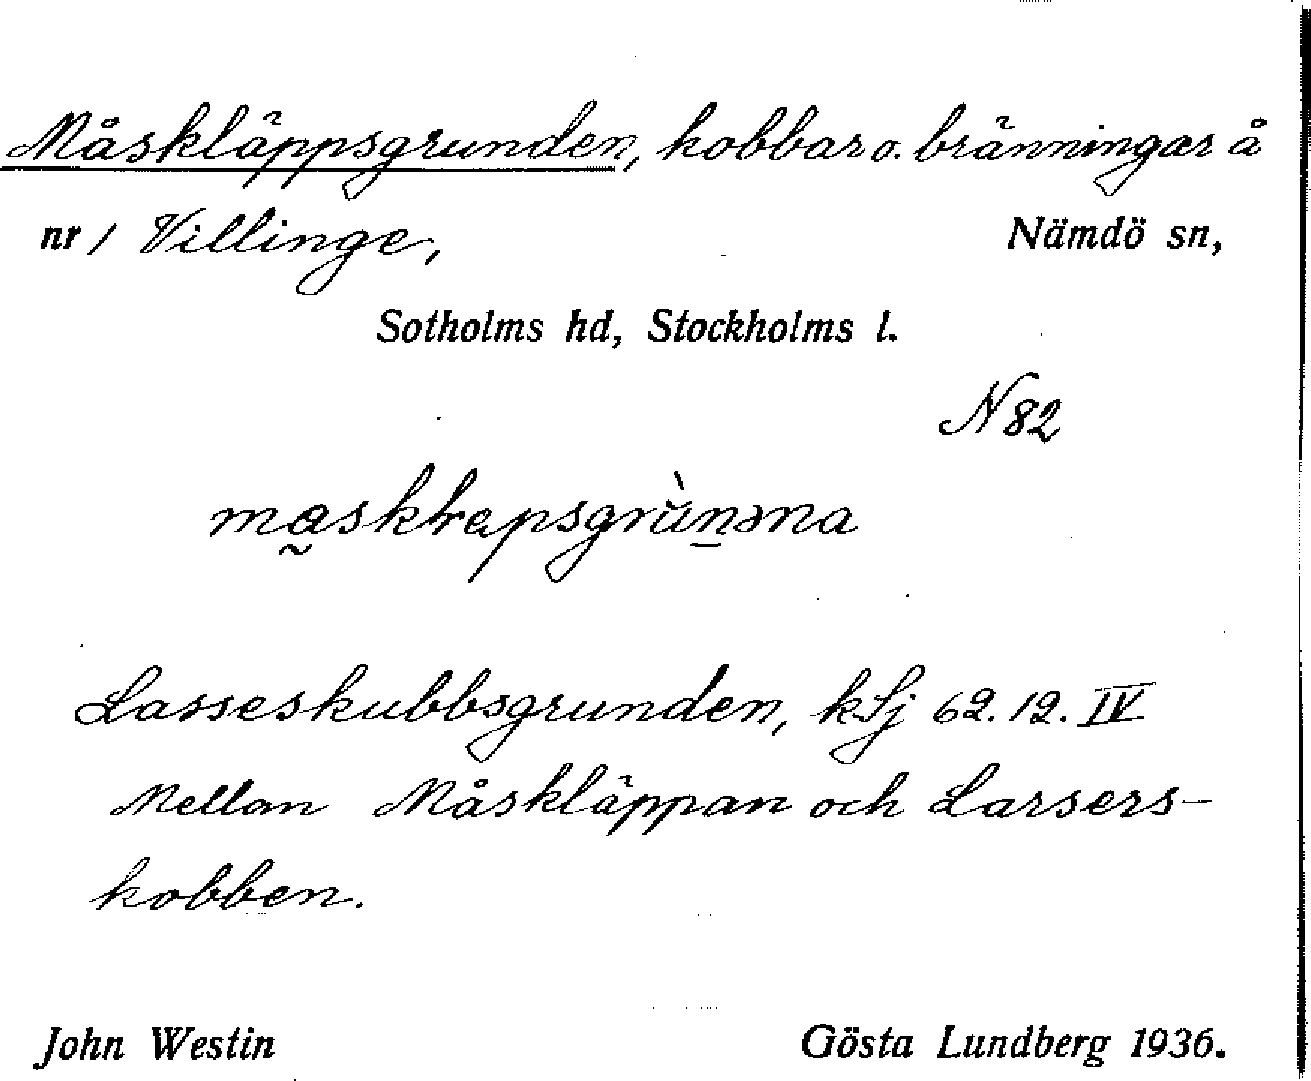 Måskläppsgrunden, kobbar o. bränningar å
nr 1 Villinge, Nämdö sn,
Sotholms hd, Stockholms l.
N 82
Lasseskubbsgrunden, kSj 62.12.IV
Mellan Måskläppan och Larsers-
kobben.
John Westin Gösta Lundberg 1936.